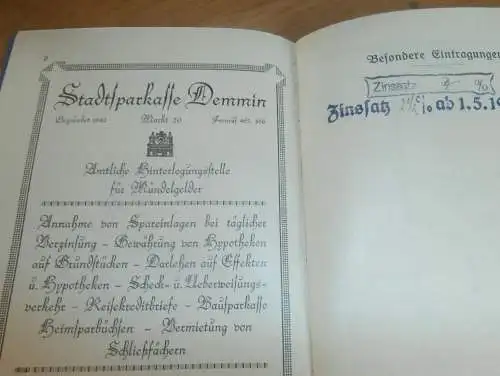 2
Stadtsparkasse Demmin
Markt 20
Amtliche Hinterlegungsstelle
für Mündelgelder
Annahme von Spareinlagen bei täglicher
Verzinsung – Gewährung von Hypotheken
auf Grundstücken – Darlehen auf Effekten
u. Hypotheken – Scheck- u. Ueberweisungs-
verkehr – Reisekreditbriefe – Bausparkasse
Heimsparbüchsen – Vermietung von
Schließfächern
Besondere Eintragungen
Zinssatz %
Zinssatz % ab 1.5.19